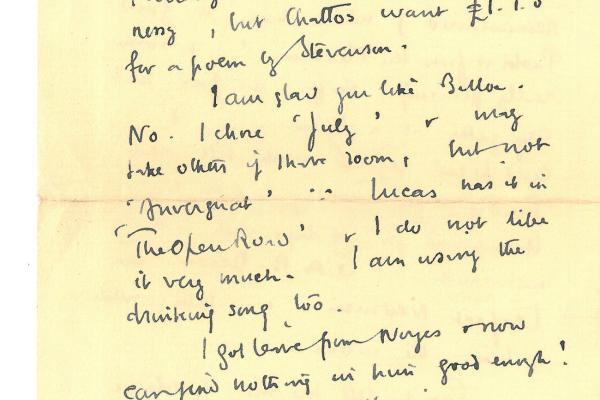 ness, but Chattos want £1.1.0
for a poem by Stevenson.
I am glad you like Belloc.
No. I chose 'July' & may
take others if I have room, but not
'Auvergnat' ∵ Lucas has it in
'The Open Road' & I do not like
it very much. I am using the
drinking song too.
I got leave from Noyes & now
can find nothing in him good enough!